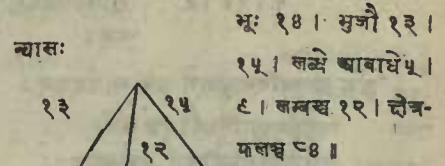 न्यासः
१३
१५
१२
भूः १४ । भुजौ १३ ।
१५ । लब्धे आबाधे ५ ।
९ । लम्बश्च १२ । क्षेत्र-
फलञ्च ८४ ॥